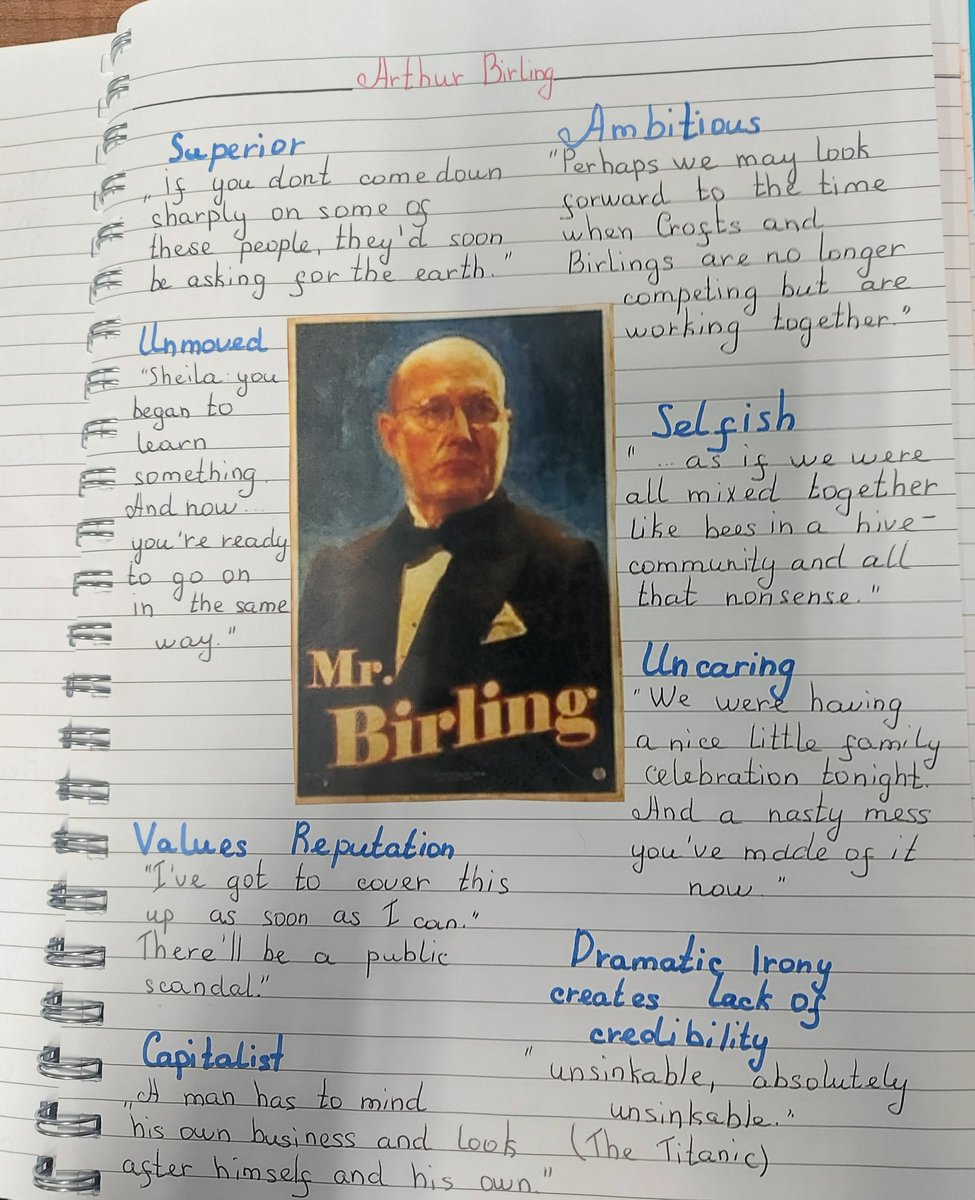 Arthur Birling
Superior
„if you dont come down
sharply on some of
these people, they'd soon
be asking for the earth."
Ambitious
"Perhaps we may look
forward to the time
when Crofts and
Birlings are no longer
competing but are
working together."
Unmoved
"Sheila you
began to
learn
something.
And now...
you're ready
to go on
in the same
way."
Mr.
Birling
Selfish
"... as if we were
all mixed together
like bees in a hive-
community and all
that nonsense."
Uncaring
"We were having
a nice little family
celebration tonight.
And a nasty mess
you've made of it
now."
Values Reputation
"I've got to cover this
up as soon as I can."
There'll be a public
scandal."
Capitalist
„A man has to mind
his own business and look
after himself and his own."
Dramatic Irony
creates lack of
credibility
"unsinkable, absolutely
unsinkable."
(The Titanic)